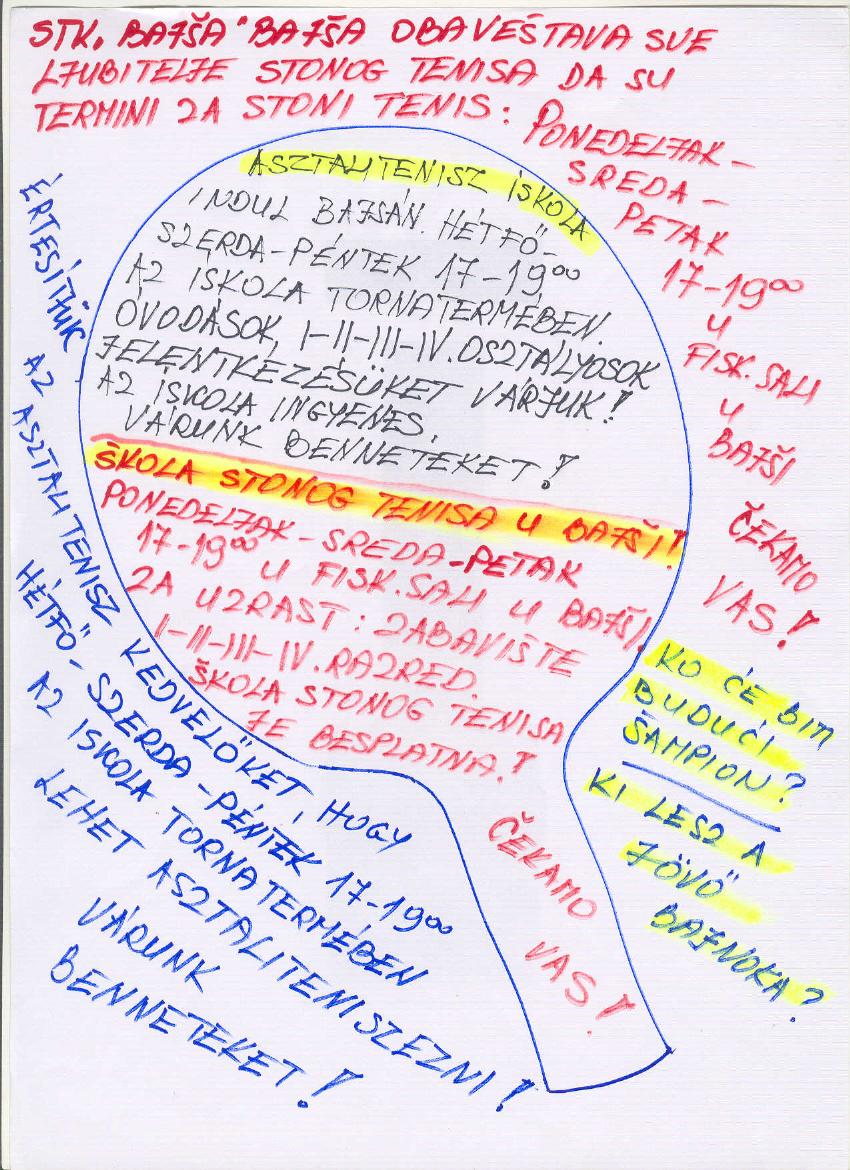 STK. BAJŠA "BAJŠA OBAVEŠTAVA SVE
LJUBITELJE STONOG TENISA DA SU
TERMINI ZA STONI TENIS:
PONEDELJAK -
SREDA -
PETAK
17-19⁰⁰
U
FISK. SALI
U
BAJŠI
ČEKAMO
VAS!
ASZTALITENISZ ISKOLA
INDUL BAJSÁN. HÉTFŐ-
SZERDA-PÉNTEK 17-19⁰⁰
AZ ISKOLA TORNATERMÉBEN.
ÓVODÁSOK, I-II-III-IV. OSZTÁLYOSOK
JELENTKEZÉSÜKET VÁRJUK!
AZ ISKOLA INGYENES.
VÁRUNK BENNETEKET!
ŠKOLA STONOG TENISA U BAJŠI!
PONEDELJAK-SREDA-PETAK
17-19⁰⁰ U FISK. SALI U BAJŠI.
ZA UZRAST: ZABAVIŠTE
I-II-III-IV. RAZRED.
ŠKOLA STONOG TENISA
JE BESPLATNA!
ČEKAMO
VAS!
KO ĆE BITI
BUDUĆI
ŠAMPION?
KI LESZ A
JÖVŐ
BAJNOKA?
ÉRTESÍTJÜK AZ ASZTALITENISZ KEDVELŐKET, HOGY
HÉTFŐ-SZERDA-PÉNTEK 17-19⁰⁰
AZ ISKOLA TORNATERMÉBEN
LEHET ASZTALITENISZEZNI!
VÁRUNK
BENNETEKET!